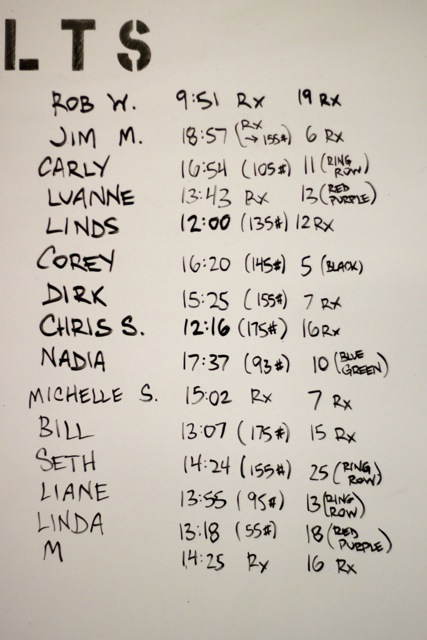 LTS
ROB W. 9:51 Rx 19 Rx
JIM M. 18:57 (Rx → 155#) 6 Rx
CARLY 16:54 (105#) 11 (RING ROW)
LUANNE 13:43 Rx 13 (RED PURPLE)
LINDS 12:00 (135#) 12 Rx
COREY 16:20 (145#) 5 (BLACK)
DIRK 15:25 (155#) 7 Rx
CHRIS S. 12:16 (175#) 16 Rx
NADIA 17:37 (93#) 10 (BLUE GREEN)
MICHELLE S. 15:02 Rx 7 Rx
BILL 13:07 (175#) 15 Rx
SETH 14:24 (155#) 25 (RING ROW)
LIANE 13:55 (95#) 13 (RING ROW)
LINDA 13:18 (55#) 18 (RED PURPLE)
M 14:25 Rx 16 Rx